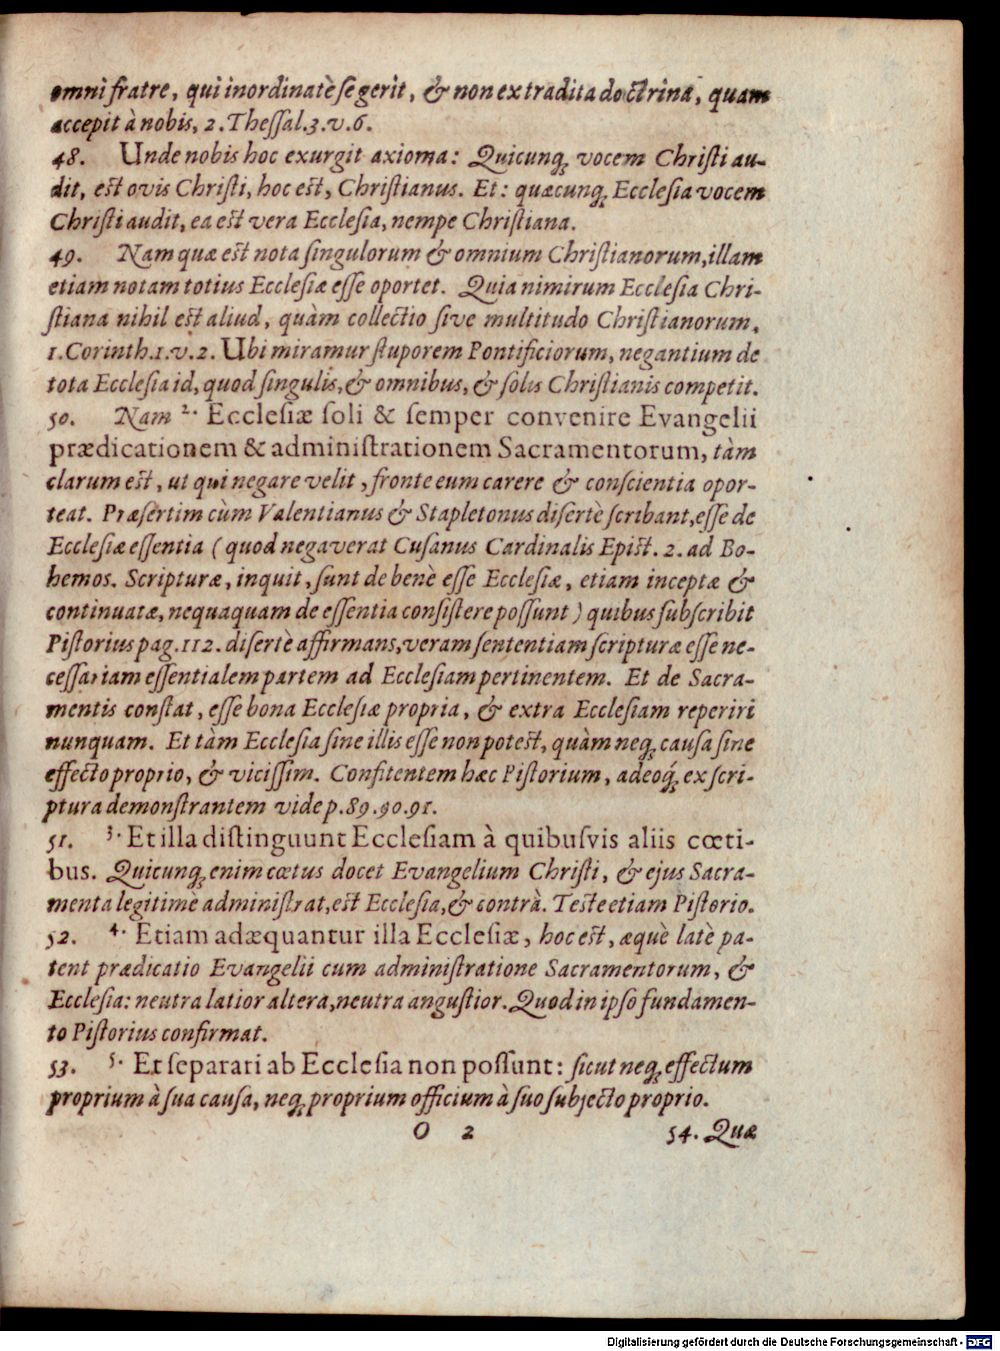 omni fratre, qui inordinatè se gerit, & non ex tradita doctrina, quam
accepit à nobis, 2. Thessal. 3. v. 6.
48. Unde nobis hoc exurgit axioma: Quicunq; vocem Christi au-
dit, est ovis Christi, hoc est, Christianus. Et: quæcunq; Ecclesia vocem
Christi audit, ea est vera Ecclesia, nempe Christiana.
49. Nam quæ est nota singulorum & omnium Christianorum, illam
etiam notam totius Ecclesiæ esse oportet. Quia nimirum Ecclesia Chri-
stiana nihil est aliud, quàm collectio sive multitudo Christianorum,
1. Corinth. 1. v. 2. Ubi miramur stuporem Pontificiorum, negantium de
tota Ecclesia id, quod singulis, & omnibus, & solis Christianis competit.
50. Nam 2. Ecclesiæ soli & semper convenire Evangelii
prædicationem & administrationem Sacramentorum, tàm
clarum est, ut qui negare velit, fronte eum carere & conscientia opor-
teat. Præsertim cùm Valentianus & Stapletonus disertè scribant, esse de
Ecclesiæ essentia (quod negaverat Cusanus Cardinalis Epist. 2. ad Bo-
hemos. Scripturæ, inquit, sunt de benè esse Ecclesiæ, etiam inceptæ &
continuatæ, nequaquam de essentia consistere possunt) quibus subscribit
Pistorius pag. 112. disertè affirmans, veram sententiam scripturæ esse ne-
cessariam essentialem partem ad Ecclesiam pertinentem. Et de Sacra-
mentis constat, esse bona Ecclesiæ propria, & extra Ecclesiam reperiri
nunquam. Et tàm Ecclesia sine illis esse non potest, quàm neq; causa sine
effecto proprio, & vicissim. Confitentem hæc Pistorium, adeoq́; ex scri-
ptura demonstrantem vide p. 89. 90. 91.
51. 3. Et illa distinguunt Ecclesiam à quibusvis aliis cœti-
bus. Quicunq; enim cœtus docet Evangelium Christi, & ejus Sacra-
menta legitimè administrat, est Ecclesia, & contrà. Teste etiam Pistorio.
52. 4. Etiam adæquantur illa Ecclesiæ, hoc est, æquè latè pa-
tent prædicatio Evangelii cum administratione Sacramentorum, &
Ecclesia: neutra latior altera, neutra angustior. Quod in ipso fundamen-
to Pistorius confirmat.
53. 5. Et separari ab Ecclesia non possunt: sicut neq; effectum
proprium à sua causa, neq; proprium officium à suo subjecto proprio.
O 2 54. Quæ
Digitalisierung gefördert durch die Deutsche Forschungsgemeinschaft - DFG